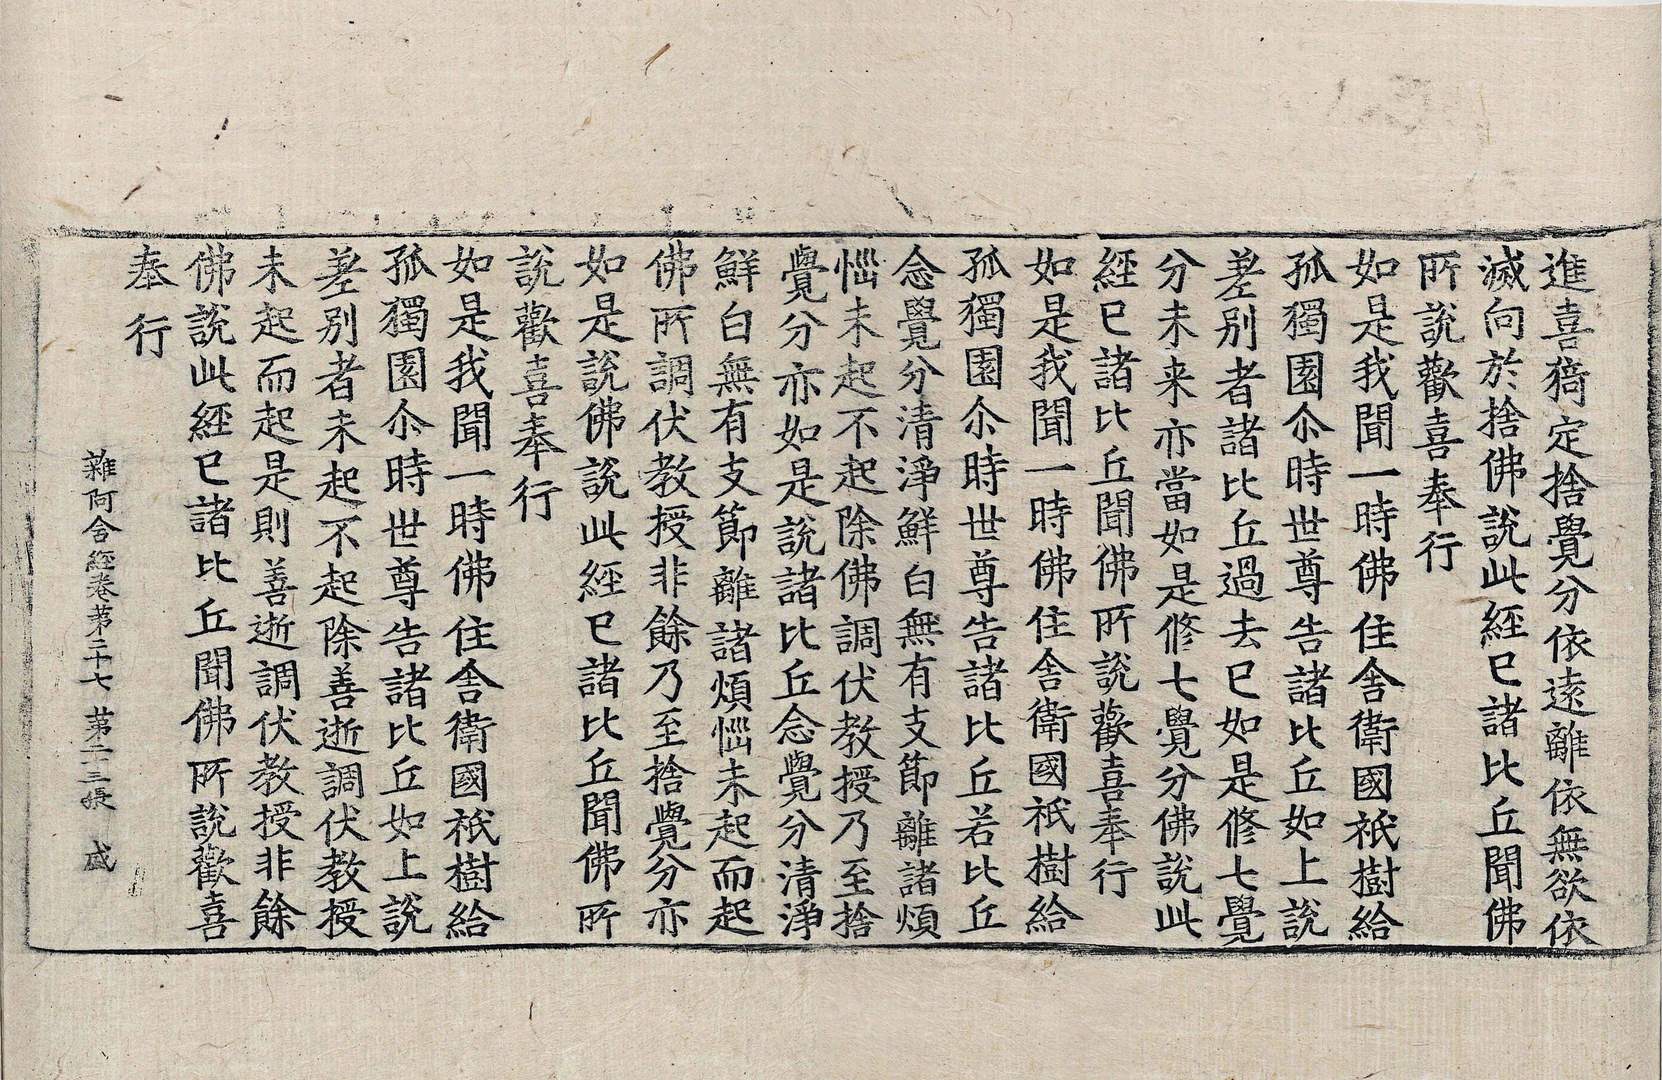 進喜猗定捨覺分依遠離依無欲依
滅向於捨佛說此經已諸比丘聞佛
所說歡喜奉行
如是我聞一時佛住舍衛國祇樹給
孤獨園尒時世尊告諸比丘如上說
差別者諸比丘過去已如是修七覺
分未来亦當如是修七覺分佛說此
經已諸比丘聞佛所說歡喜奉行
如是我聞一時佛住舍衛國祇樹給
孤獨園尒時世尊告諸比丘若比丘
念覺分清淨鮮白無有支節離諸煩
惱未起不起除佛調伏教授乃至捨
覺分亦如是說諸比丘念覺分清淨
鮮白無有支節離諸煩惱未起而起
佛所調伏教授非餘乃至捨覺分亦
如是說佛說此經已諸比丘聞佛所
說歡喜奉行
如是我聞一時佛住舍衛國祇樹給
孤獨園尒時世尊告諸比丘如上說
差別者未起不起除善逝調伏教授
未起而起是則善逝調伏教授非餘
佛說此經已諸比丘聞佛所說歡喜
奉行
雜阿含經卷第二十七 第二十三張 盛